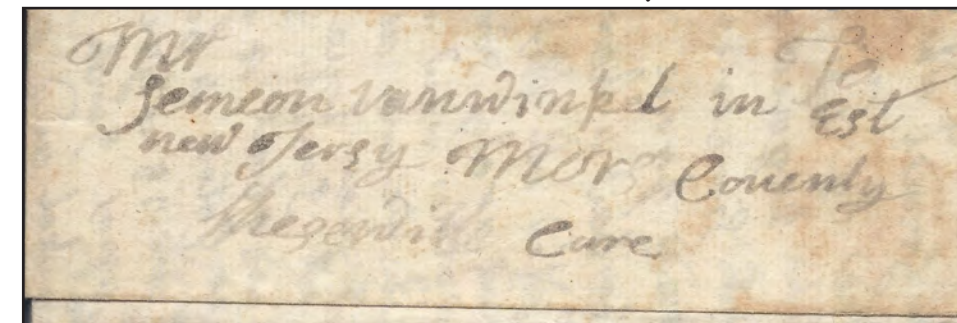 Mr To
Semeon vanwinkel in Est
new Jersy Mors Couenly
Care